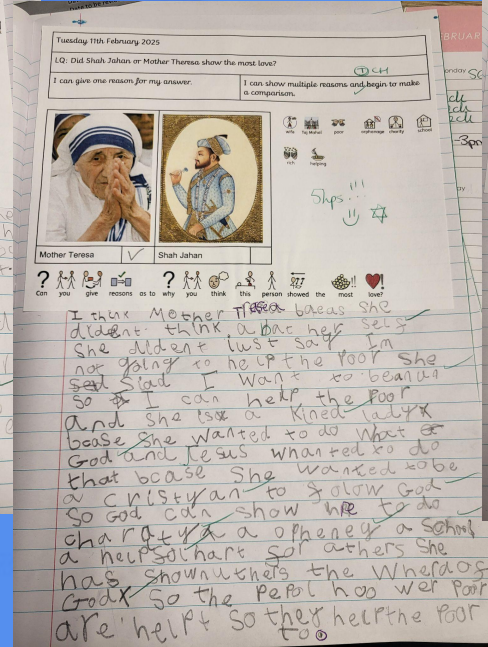 Tuesday 11th February 2025
LQ: Did Shah Jahan or Mother Theresa show the most love?
I can give one reason for my answer.
I can show multiple reasons and begin to make a comparison.
CH
arts
Taj Mahal
poor
orphanage
charity
school
rich
helping
5hps...
Mother Teresa
Shah Jahan
Can you give reasons as to why you think this person showed the most love?
I think Mother Tresea baeas she
dident think abat her self
She dident iust say Im
not going to help the Poor She
Siad I want to beanun
So I can help the poor
and she is a Kined lady
bcase she wanted to do what
God and Jesus whanted to do
that bcase She wanted to be
a cristyan to folow God
So God can show he to do
charaty a opheney a school
a helpsolhart for athers She
has shown uthers the Wherdof
God So the Pepol hoo wer Poor
are helpt so they help the Poor
to
BRUAR
3pm